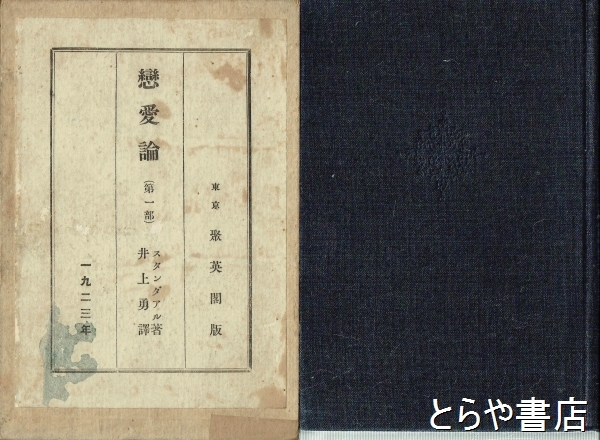 東京 聚英閣版
戀愛論（第一部）
スタンダアル著
井上勇譯
一九二三年
とらや書店